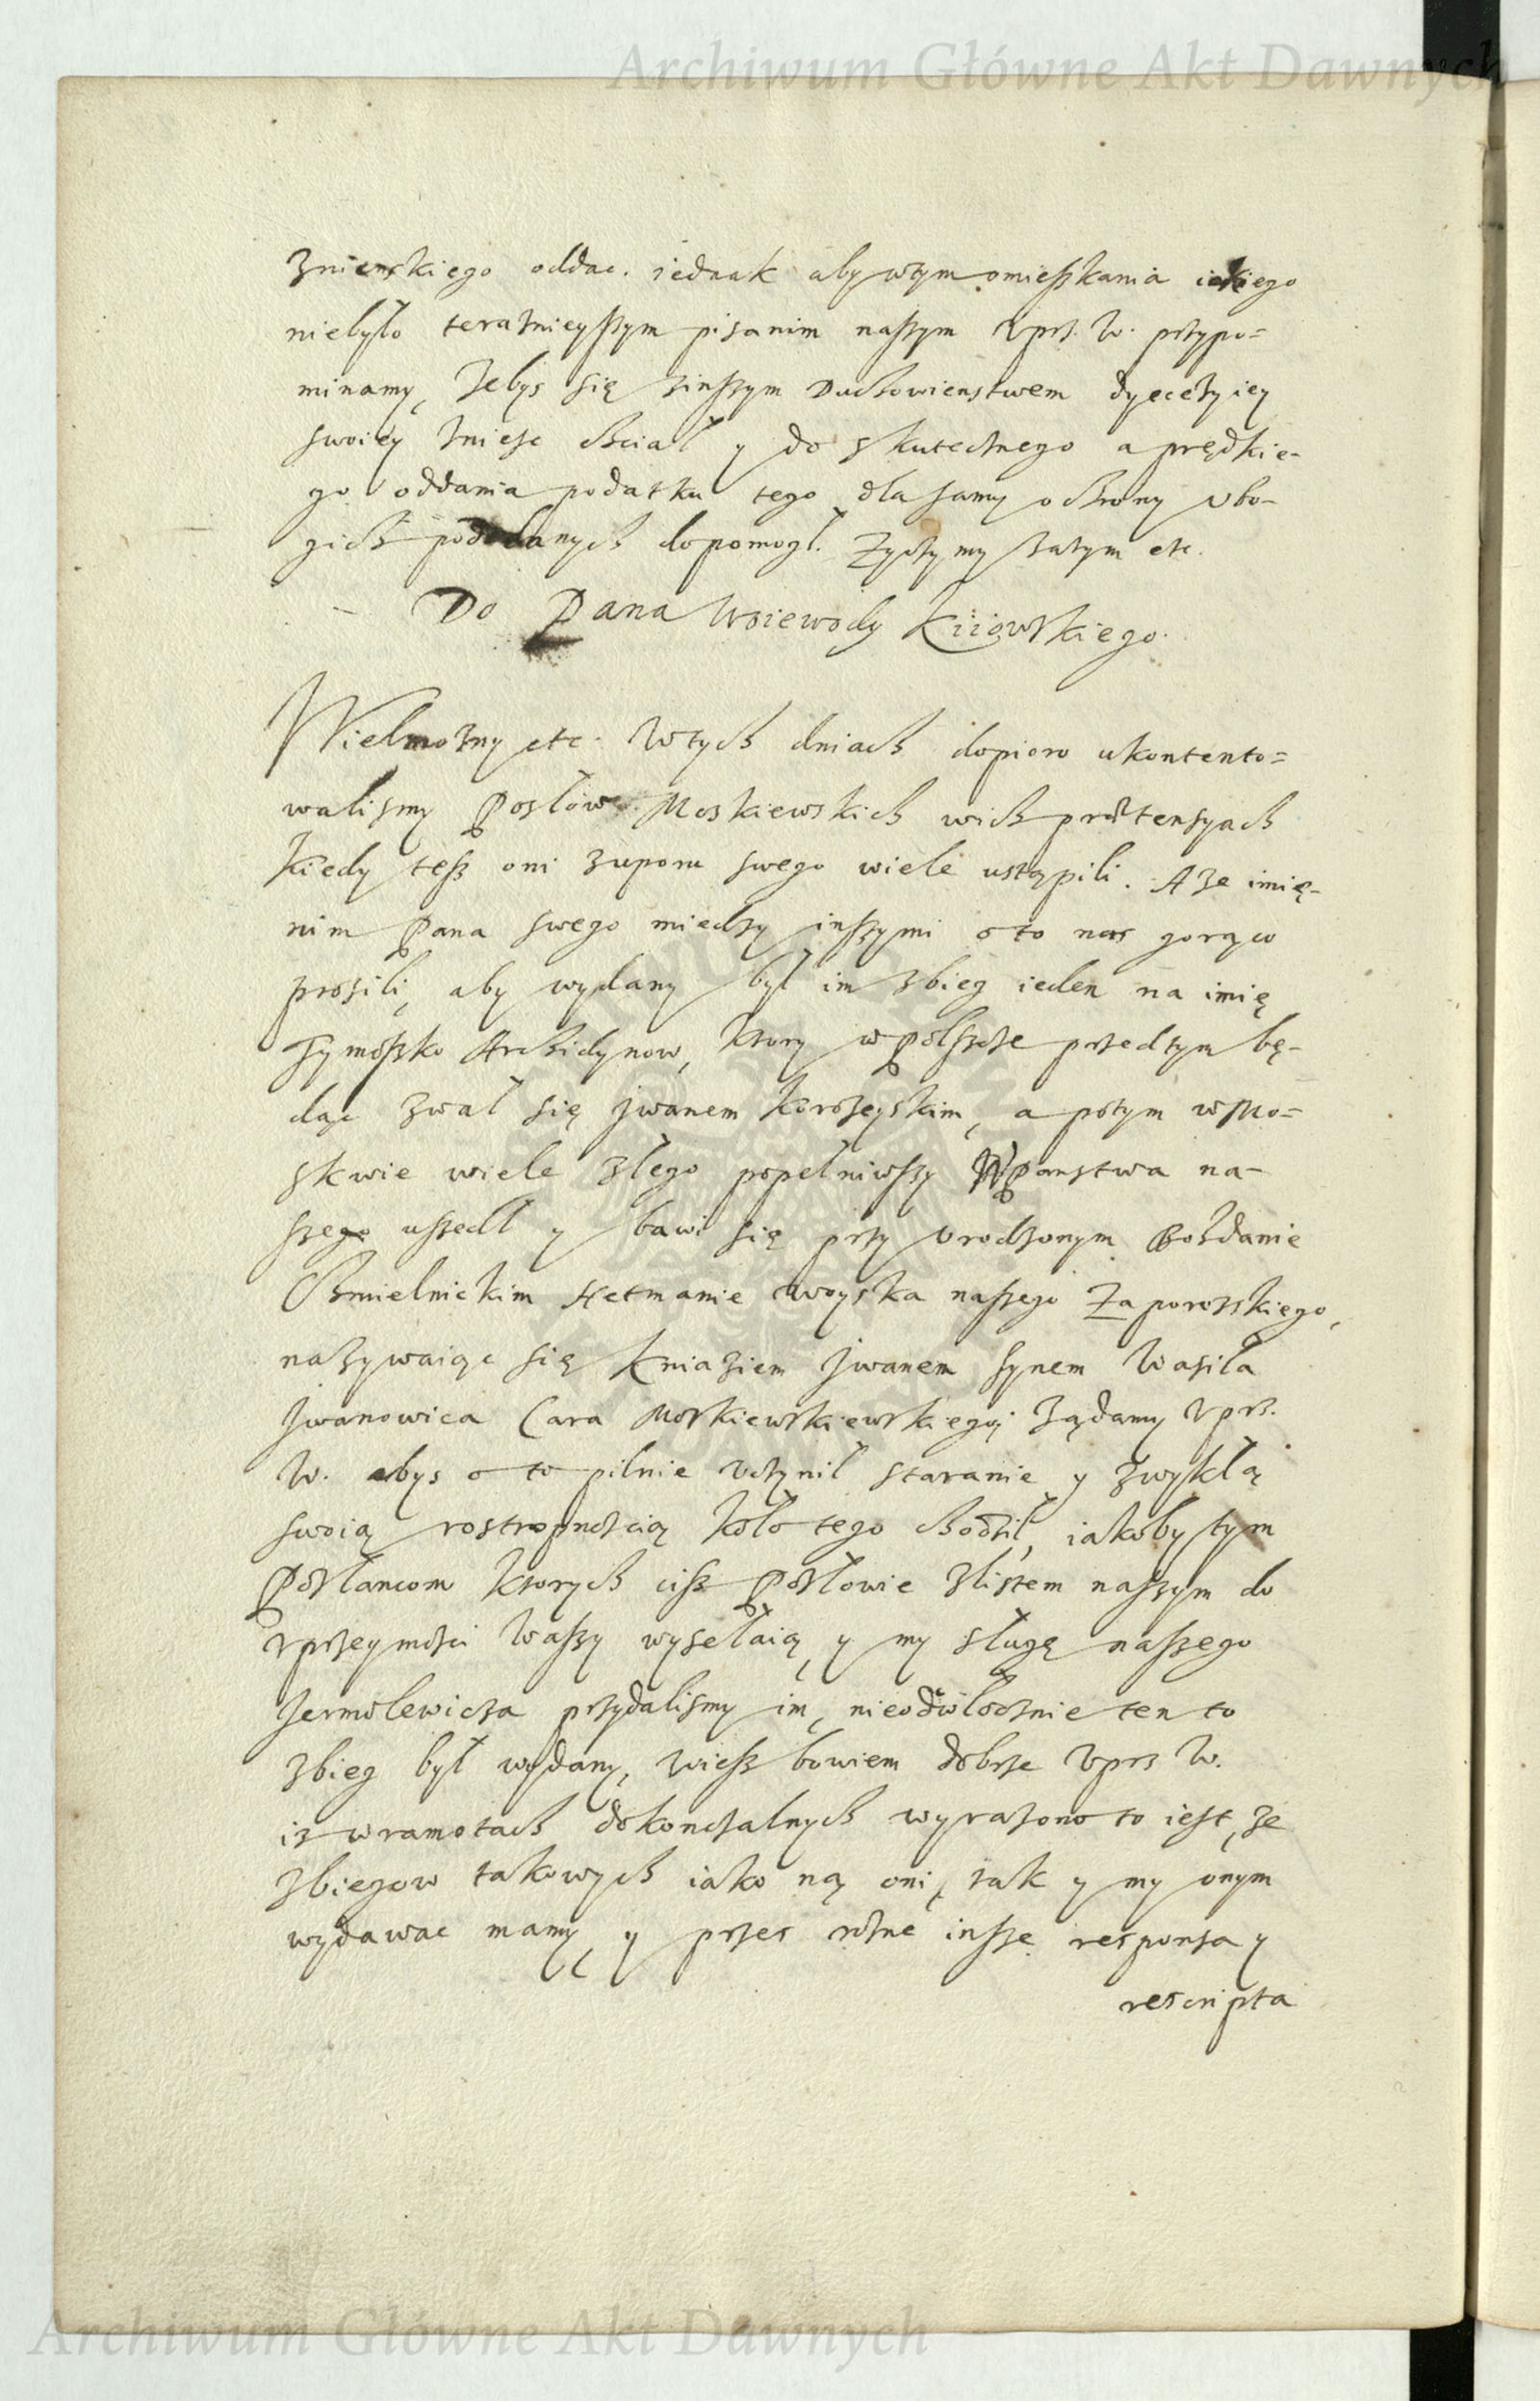 Archiwum Główne Akt Dawnych
znierskiego oddac. iednak aby wtym omieszkania iakiego
niebyło teraznieyszym pisanim naszym Uprz. W. przypo=
minamy, zebys się zinszym Duchowienstwem dyecezyiey
swoiey zniesc chciał y do skutecznego a prędkie-
go oddania podatku tego dla samy ochrony ubo-
gich poddanych dopomogł. Zyczymy zatym etc.
Do Pana Woiewody Kiiowskiego.
Wielmozny etc. Wtych dniach dopioro ukontento=
walismy Posłow Moskiewskich wich praetensyach
kiedy tesz oni zuporu swego wiele ustąpili. A ze imię-
nim Pana swego miedzy inszymi o to nas gorąco
prosili, aby wydany był im zbieg ieden na imię
Tymoszko Archidynow, ktory wPolszcze przedtym bę-
dąc zwał się Jwanem Korozeyskim, a potym wMo=
skwie wiele złego popełniwszy WPanstwa na-
szego uszedł y bawi się przy urodzonym Bohdanie
Chmielnickim Hetmanie woyska naszego Zaporozskiego,
nazywaiąc się Kniaziem Jwanem synem Wasila
Jwanowica Cara Moskiewskiewskiego; Ządamy Uprz.
W. abys o to pilnie uczynił staranie y zwykłą
swoią rostropnoscią koło tego chodził, iakoby tym
Posłancom ktorych cisz Posłowie zlistem naszym do
Uprzeymosci Waszy wysełaią, y my sługę naszego
Jermolewicza przydalismy im, nieodwłocznie ten to
zbieg był wydany, Wiesz bowiem dobrze Uprz W.
iz wramotach dokonczalnych wyrazono to iest, ze
zbiegow takowych iako ną oni, tak y my onym
wydawac mamy, y przes rozne insze responsa y
rescripta
Archiwum Główne Akt Dawnych